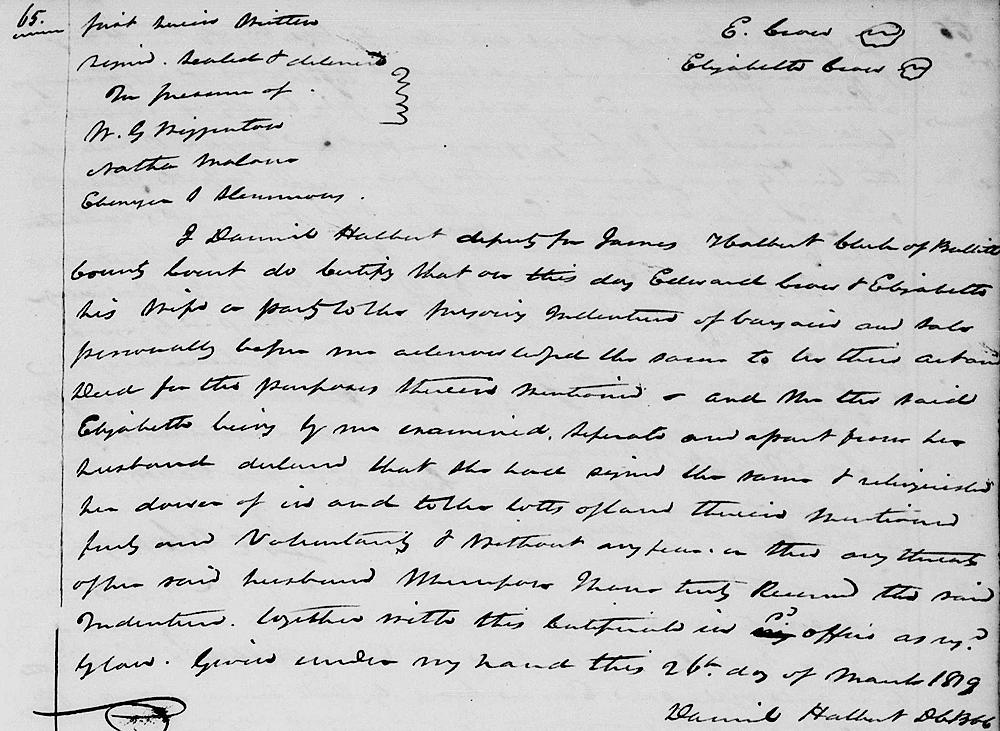 65.
first herein Written
signd. sealed & deliverd
In presence of.
W. G Wigginton
Nathan
Ebenezer S Hemmoug.
E. Crow
Elizabeth Crow
I Daniel Halbert deputy for James Halbert Clerk of Bullitt
County Court do Certify that on this day Edward Crow & Elizabeth
his Wife a party to the foregoing Indenture of bargain and sale
personally before me acknowledged the same to be their act and
Deed for the purposes therein Mentioned and the the said
Elizabeth being by me examined. seperate and apart from her
husband declared that she had signd the same & relinquished
her dower of in and to the lotts of land therein Mentioned
freely and Voluntarily & Without any fear or thee any threats
of her said husband Whereupon I have truly Record the said
Indenture. together with this Certificate in my office as rqd
by law. Given under my hand this 26th day of March 1819
Daniel Halbert DCBCC